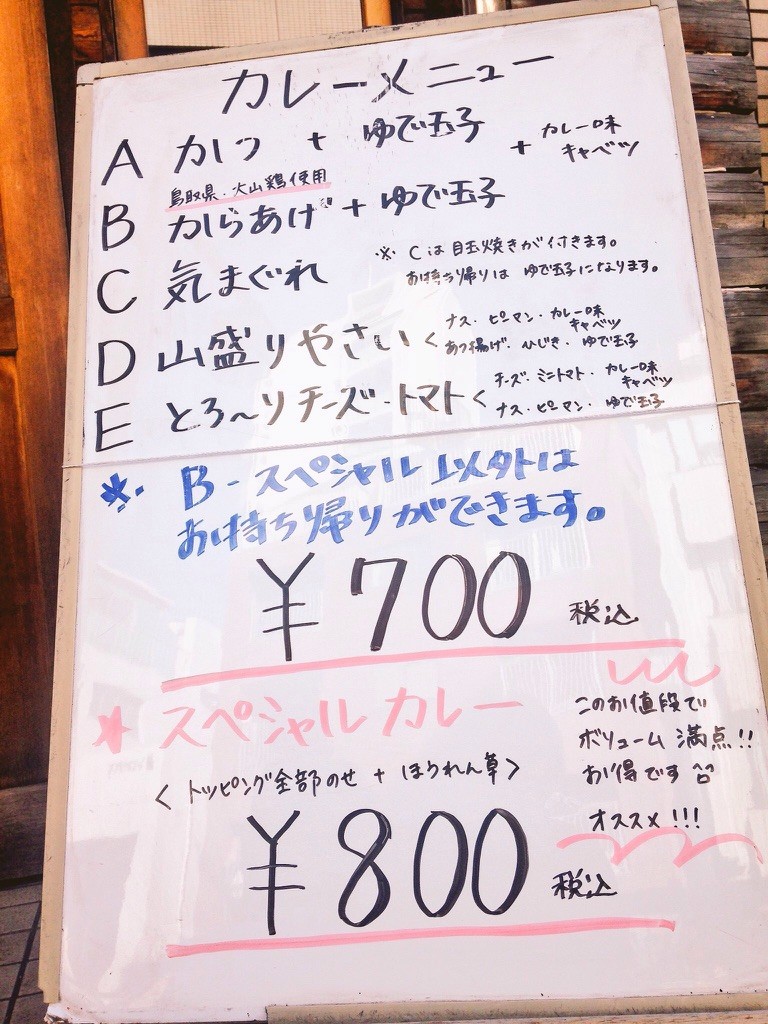 カレーメニュー
A かつ + ゆで玉子 + カレー味キャベツ
鳥取県・大山鶏使用
B からあげ + ゆで玉子
C 気まぐれ ※ Cは目玉焼きが付きます。
お持ち帰りは ゆで玉子になります。
D 山盛りやさい < ナス・ピーマン・カレー味キャベツ
あつ揚げ・ひじき・ゆで玉子
E とろ〜りチーズ・トマト < チーズ・ミニトマト・カレー味キャベツ
ナス・ピーマン・ゆで玉子
※. B-スペシャル以外は
お持ち帰りができます。
¥700 税込
* スペシャルカレー
<トッピング全部のせ + ほうれん草>
¥800 税込
このお値段で
ボリューム満点!!
お得です
オススメ!!!